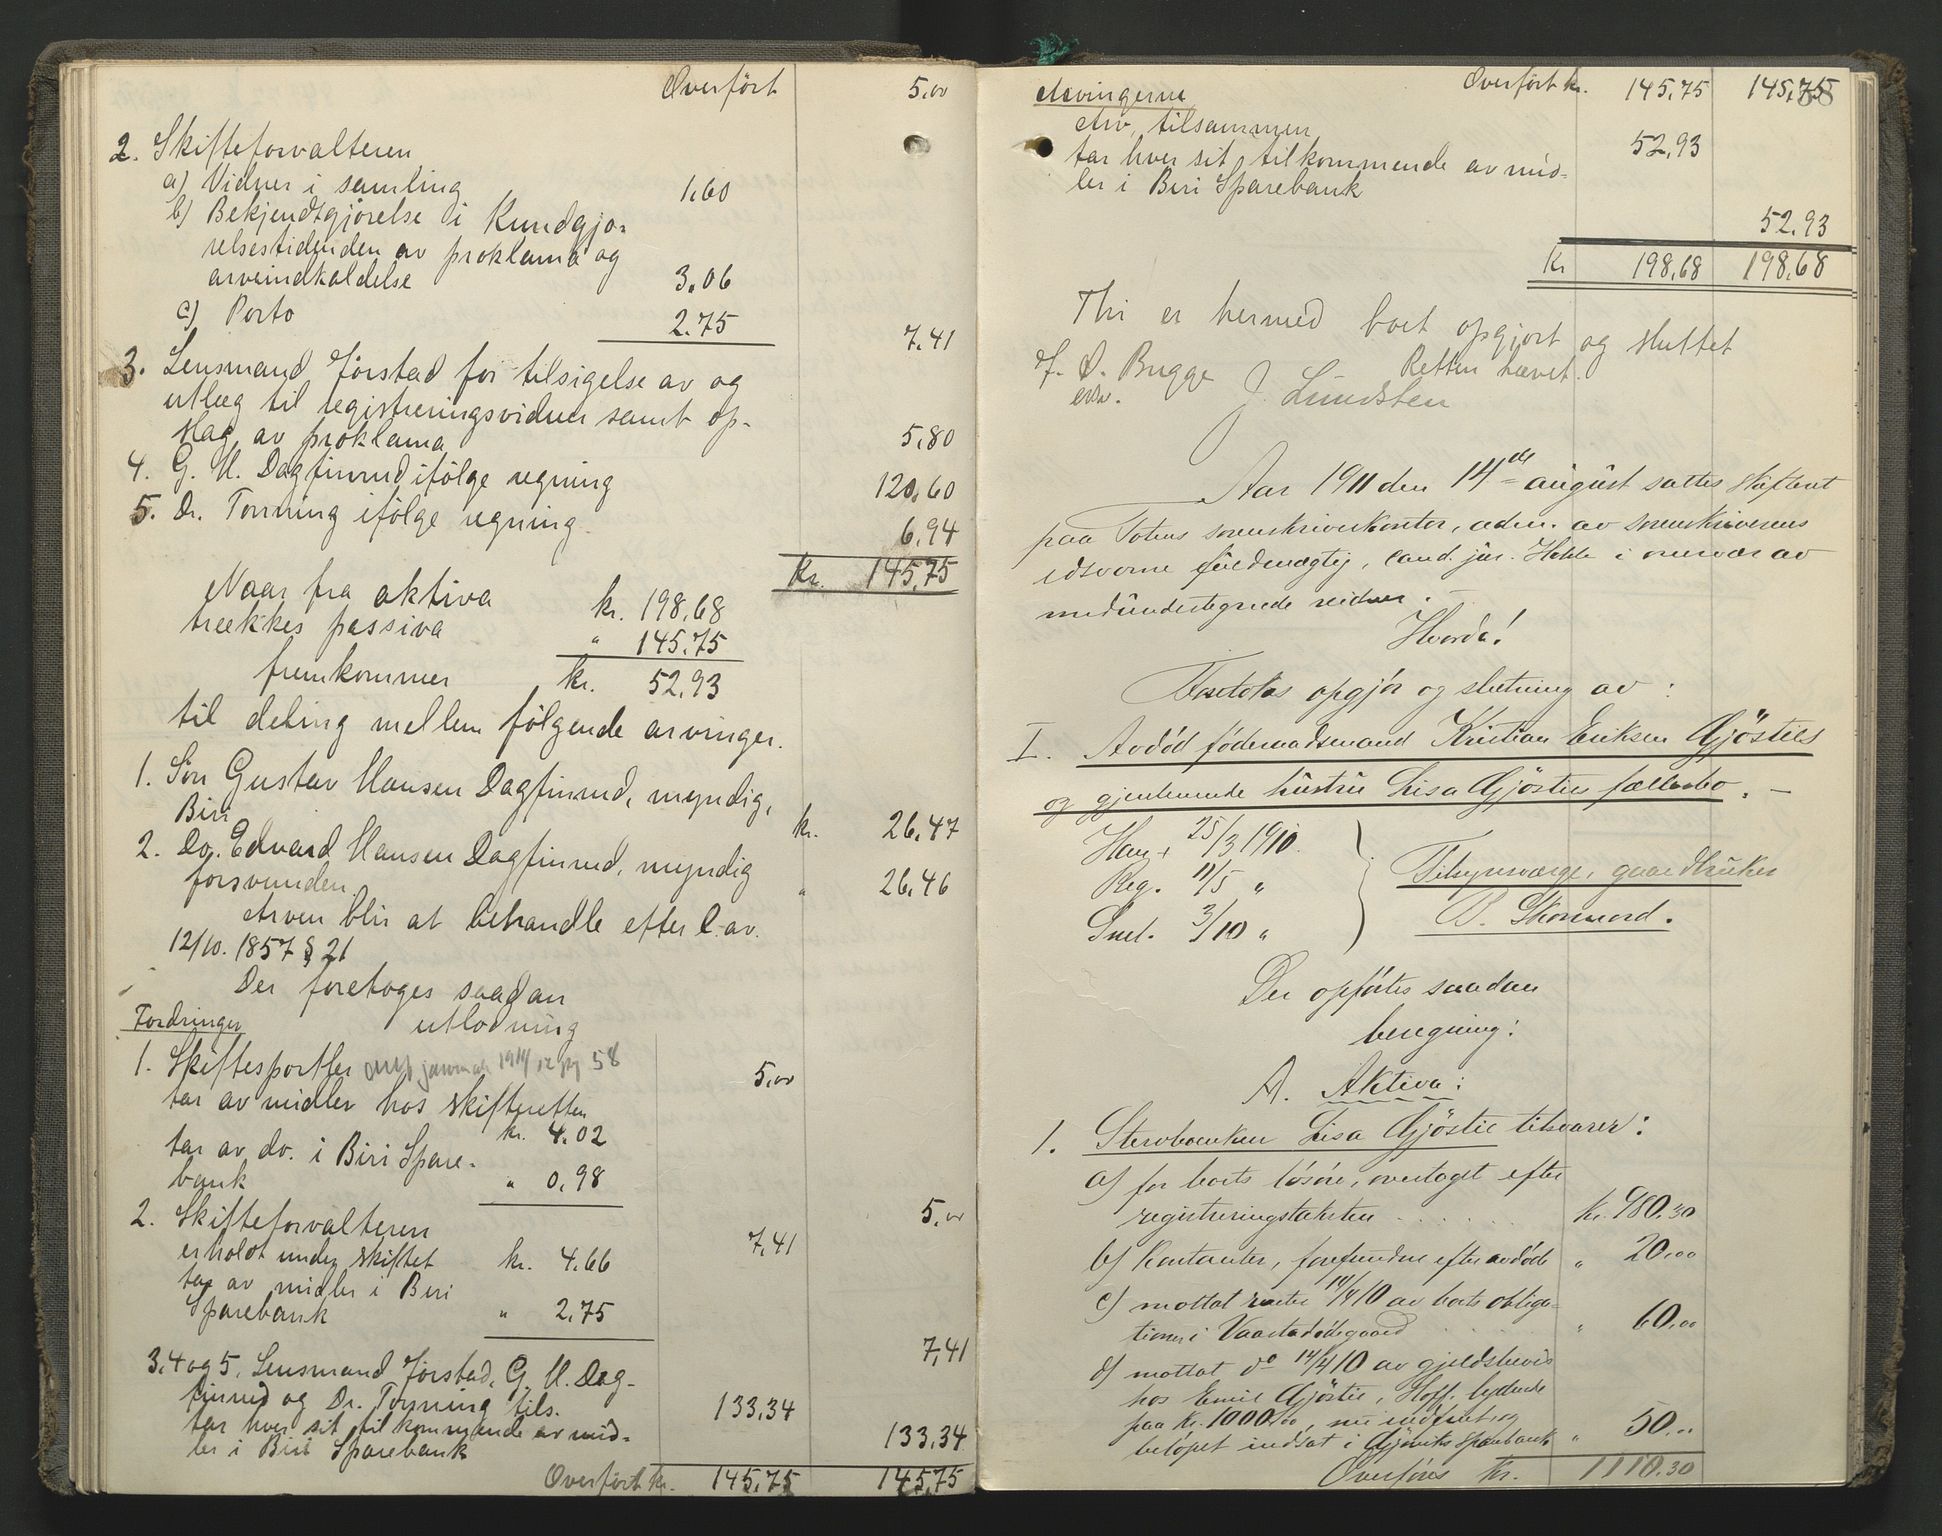 Overført 5,00
2. Skifteforvalteren
a) Vidner i samling 1,60
b) Bekjendtgjørelse i Kundgjø-
relsestidenden av proklama og
arveindkaldelse 3,06
c) Porto 2.75
7,41
3. Lensmand Jørstad for tilsigelse av og
utlæg til registreringsvidner samt op-
slag av proklama 5,80
4. G. H. Dagfinrud ifølge regning 120,60
5. Dr. Tonning ifølge regning. 6,94
Kr. 145,75
Naar fra aktiva kr. 198,68
trækkes passiva " 145,75
fremkommer kr. 52,93
til deling mellem følgende arvinger.
1. Søn Gustav Hansen Dagfinrud, myndig,
Biri kr. 26,47
2. Do. Edvard Hansen Dagfinrud, myndig
forsvunden. " 26,46
Arven blir at behandle efter l. av.
12/10. 1857 § 21
Der foretages saadan
utlodning
Fordringer
1. Skiftesportler januar 58 5,00
tar av midler hos skifteretten
kr. 4,02
tar av do. i Biri Spare-
bank " 0,98
5,00
2. Skifteforvalteren 7,41
erholdt under skiftet kr. 4,66
tar av midler i Biri
Sparebank " 2,75
7,41
3,4 og 5, Lensmand Jørstad, G. H. Dag-
finrud og Dr. Tonning tils. 133,34
tar hver sit tilkommende av mid-
ler i Biri Sparebank 133,34
Overført kr. 145,75 145,75
Overført kr. 145,75 145,75
Arvingerne
Arv, tilsammen 52,93
tar hver sit tilkommende av mid-
ler i Biri Sparebank
52,93
Kr 198,68 198,68
Thi er hermed boet opgjort og sluttet
Retten hævet.
J. O. Bugge J. Lundsten
edsv.
Aar 1911 den 14de august sattes skifteret
paa Totens sorenskriverkontor, adm. av sorenskriverens
edsvorne fuldmægtig, cand. jur. Holste i overvær av
medundertegnede vidner.
Hvorda!
Foretoks opgjør og slutning av:
I. Avdød føderaadsmand Kristian Eriksen Gjøsties
og gjenlevende hustru Lisa Gjøsties fællesbo.
Han + 25/3 1910.
Reg. 11/5 "
Saml. 3/10 "
Tilsynsværge, gaardbruker
P. Skonnord.
Der opførtes saadan
beregning:
A. Aktiva:
1. Stervboenken Lisa Gjøstie tilsvarer:
a) for boets løsøre, overtaget efter
registreringstaksten kr. 980.30
b) Kontanter, forefundne efter avdøde " 20,00
c) mottat renter 14/4 10 av boets obliga-
tioner i Vaarstadødegaard " 60,00
d) mottat do 14/4 10 av gjeldsbevis
hos Emil Gjøstie, Hoff. lydende
paa kr. 1000,00, nu indfriet og
beløpet indsat i Gjøviks Sparebank " 50,00
Overføres Kr. 1110.30